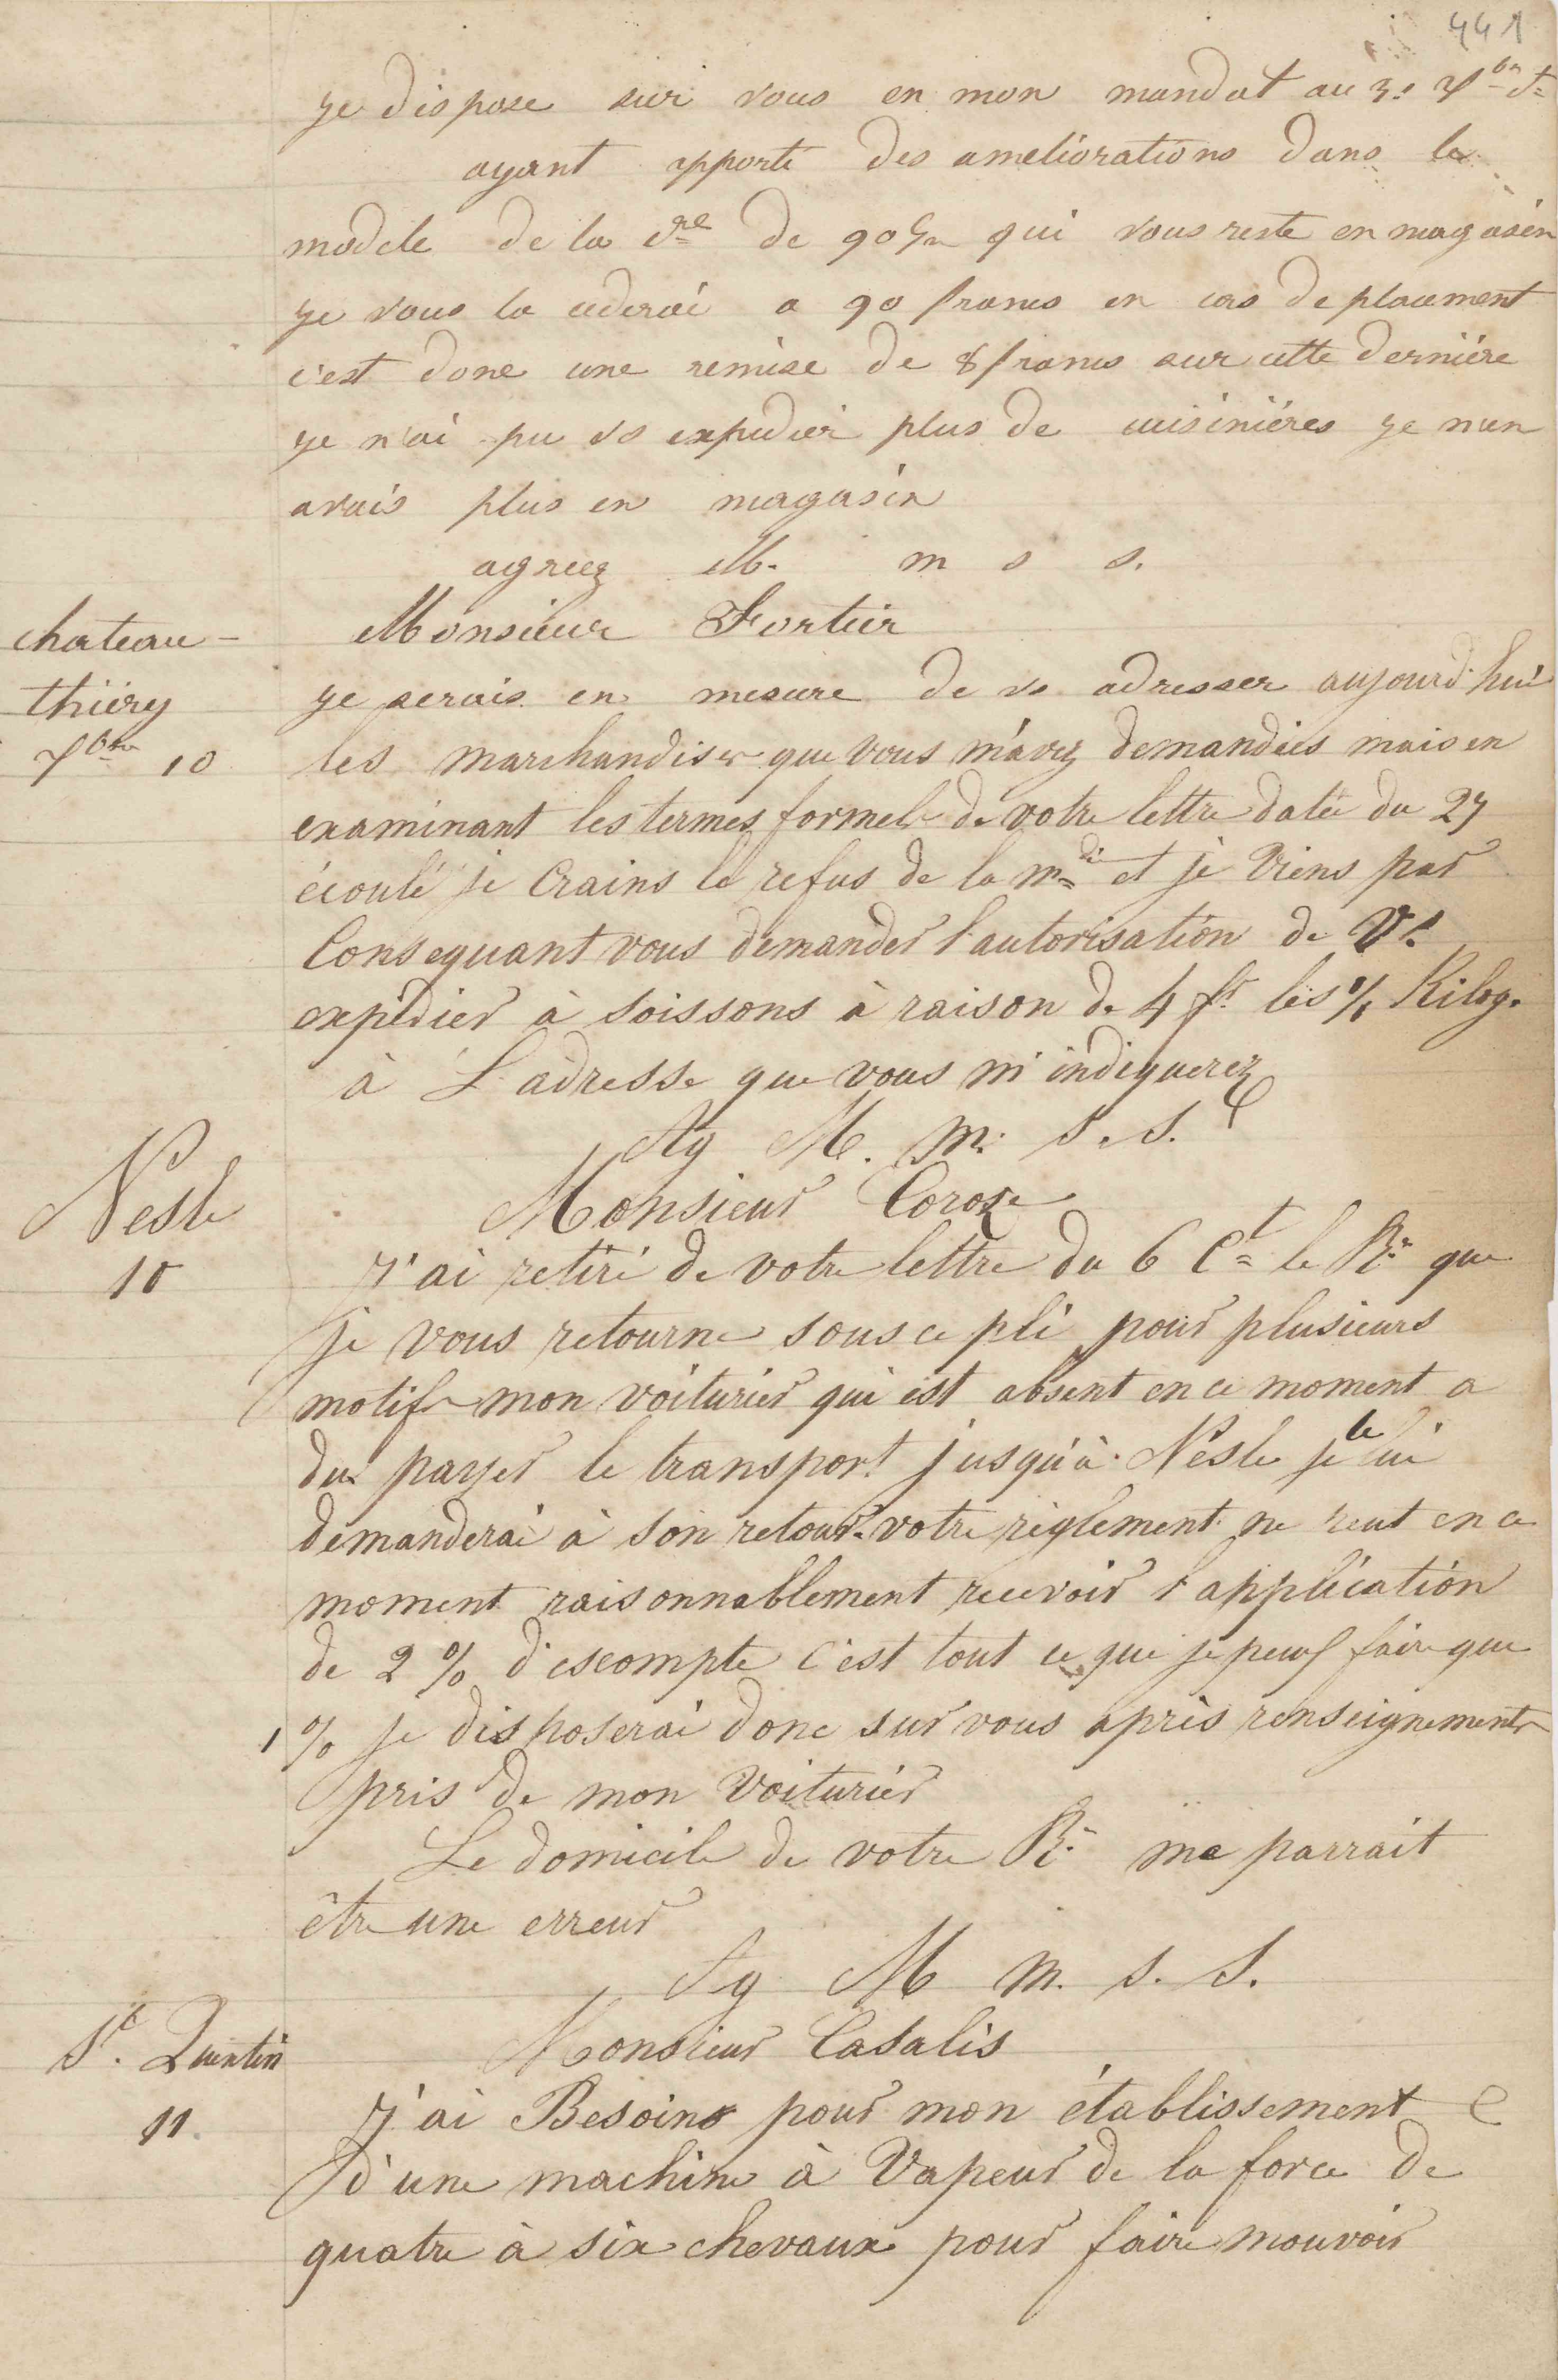 441
je dispose sur vous en mon mandat au 30 Xbre
ayant apporté des ameliorations dans le
modele de la dre de 90 qui vous reste en magasin
je vous la cederai a 90 francs en cas de placement
c'est donc une remise de 8 francs sur cette derniére
je n'ai pu vs expedier plus de cuisiniéres je n'en
avais plus en magasin
agreez M. m s s.
chateau-
thiéry
7bre 10
Monsieur Fortier
je serais en mesure de vs adresser aujourd'hui
les marchandises que vous m'avez demandées mais en
examinant les termes formels de votre lettre datée du 27
écoulé je Crains le refus de la mdie et je Viens par
Consequant vous demander l'autorisation de Vs
expédier à Soissons à raison de 4 fr les % Kilog.
à L'adresse que vous m'indiquerez
Ag M. m. s. s.
Nesle
10
Monsieur Coroze
J'ai retiré de votre lettre du 6 Ct le Rt que
je vous retourne sous ce pli pour plusieurs
motifs mon voiturier qui est absent en ce moment a
du payer le transport jusqu'à Nesle je le lui
demanderai à son retour. votre réglement ne peut en ce
moment raisonnablement recevoir l'application
de 2 % d'escompte c'est tout ce que je peux faire que
1 % je disposerai donc sur vous après renseignements
pris de mon Voiturier
Le domicile de votre Rt me parrait
être une erreur
Ag M m. s. s.
St. Quentin
11.
Monsieur Casalis
J'ai Besoin pour mon établissement
d'une machine à Vapeur de la force de
quatre à six chevaux pour faire mouvoir